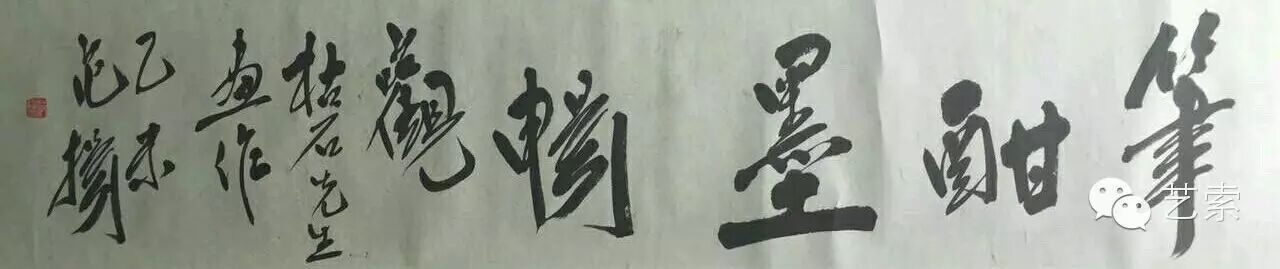 筆酣墨暢
觀
枯石先生
画作
乙未
范揚
艺索